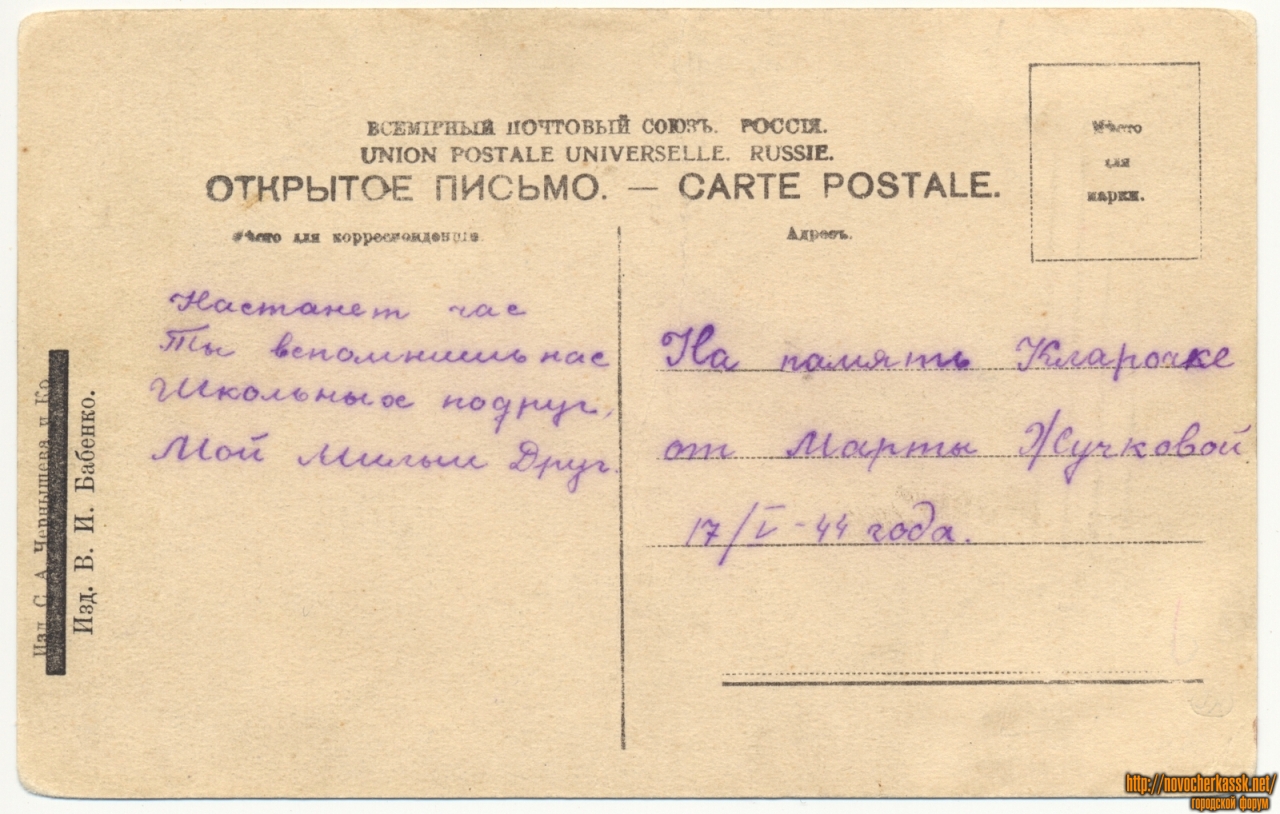 ВСЕМІРНЫЙ ПОЧТОВЫЙ СОЮЗЪ. РОССІЯ.
UNION POSTALE UNIVERSELLE. RUSSIE.
ОТКРЫТОЕ ПИСЬМО. — CARTE POSTALE.
Мѣсто
для
марки.
Мѣсто для корреспонденціи.
Адресъ.
Настанет час
Ты вспомнишь нас
Школьных подруг,
Мой милый Друг.
На память Кларочке
от Марты Жучковой
17/V-44 года.
Изд. С. А. Чернышева и Ко.
Изд. В. И. Бабенко.
http://novocherkassk.net/
городской форум